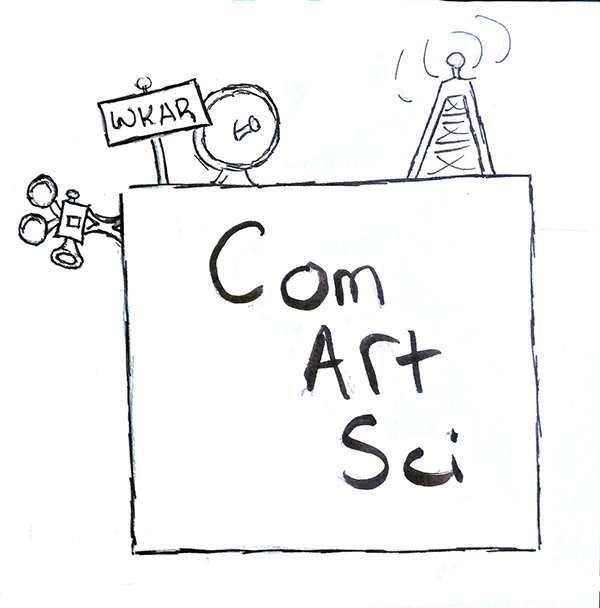 WKAR
60
Com
Art
Sci